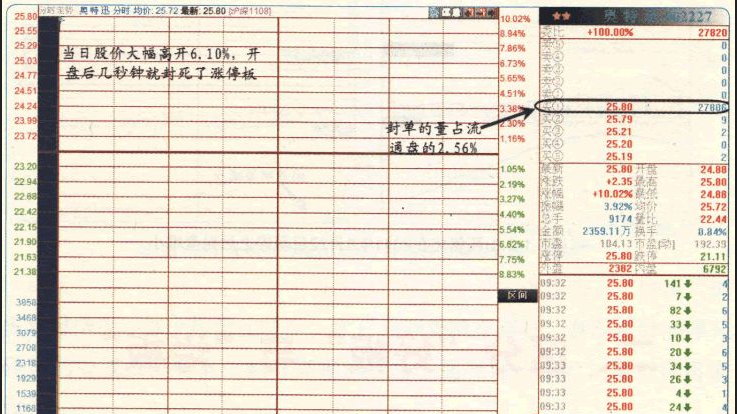 分时走势 奥特迅 分时 均价: 25.72 最新: 25.80 [沪深1108]
★★ 奥特迅 002227
25.80
25.55
25.29
25.03
24.77
24.51
24.24
23.99
23.72
23.20
22.94
22.68
22.42
22.15
21.90
21.63
21.38
3858
3468
3079
2708
2318
1929
1539
1168
当日股价大幅高开6.10%,开
盘后几秒钟就封死了涨停板
封单的量占流
通盘的2.56%
10.02%
8.94%
7.86%
6.73%
5.65%
4.51%
3.38%
2.30%
1.16%
1.05%
2.19%
3.27%
4.40%
5.54%
6.62%
7.75%
8.83%
区间
委比 +100.00% 27820
卖⑤ 0
卖④ 0
卖③ 0
卖② 0
卖① 0
买① 25.80 27806
买② 25.79 9
买③ 25.21 2
买④ 25.20 0
买⑤ 25.19 2
最新 25.80 开盘 24.88
涨跌 +2.35 最高 25.80
涨幅 +10.02% 最低 24.88
振幅 3.92% 均价 25.72
总手 9174 量比 22.44
金额 2359.11万 换手 8.84%
市盈 104.13 市盈[动] 192.39
涨停 25.80 跌停 21.11
外盘 2382 内盘 6792
09:32 25.80 141 4
09:32 25.80 7 2
09:32 25.80 82 6
09:32 25.80 33 5
09:32 25.80 10 3
09:32 25.80 20 6
09:33 25.80 34 5
09:33 25.80 26 3
09:33 25.80 4 1
09:33 25.80 24 4